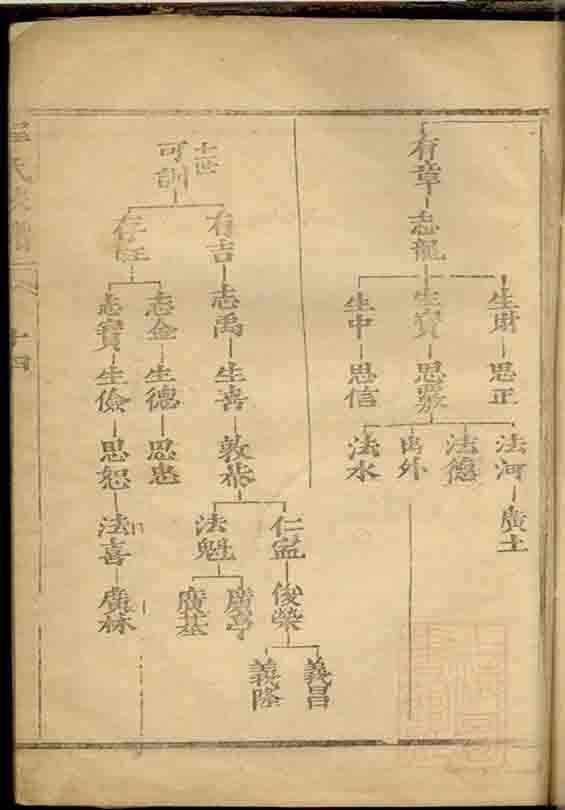 有章
志龍
生財
思正
生寶
思聚
生中
思信
法河
廣土
法德
出外
法水
十世
可訓
有吉
志禹
生喜
敦恭
仁盛
俊榮
義昌
義隆
法魁
廣亨
廣基
志金
生德
思忠
志寶
生儉
思恕
法喜
廣林
氏族譜
十四